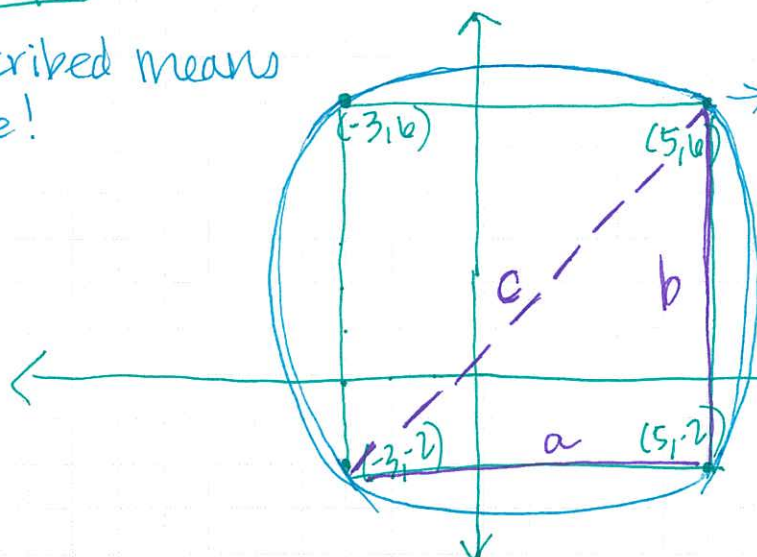 cribed means
e!
(-3,6)
(5,6)
c
b
(-3,-2)
a
(5,-2)